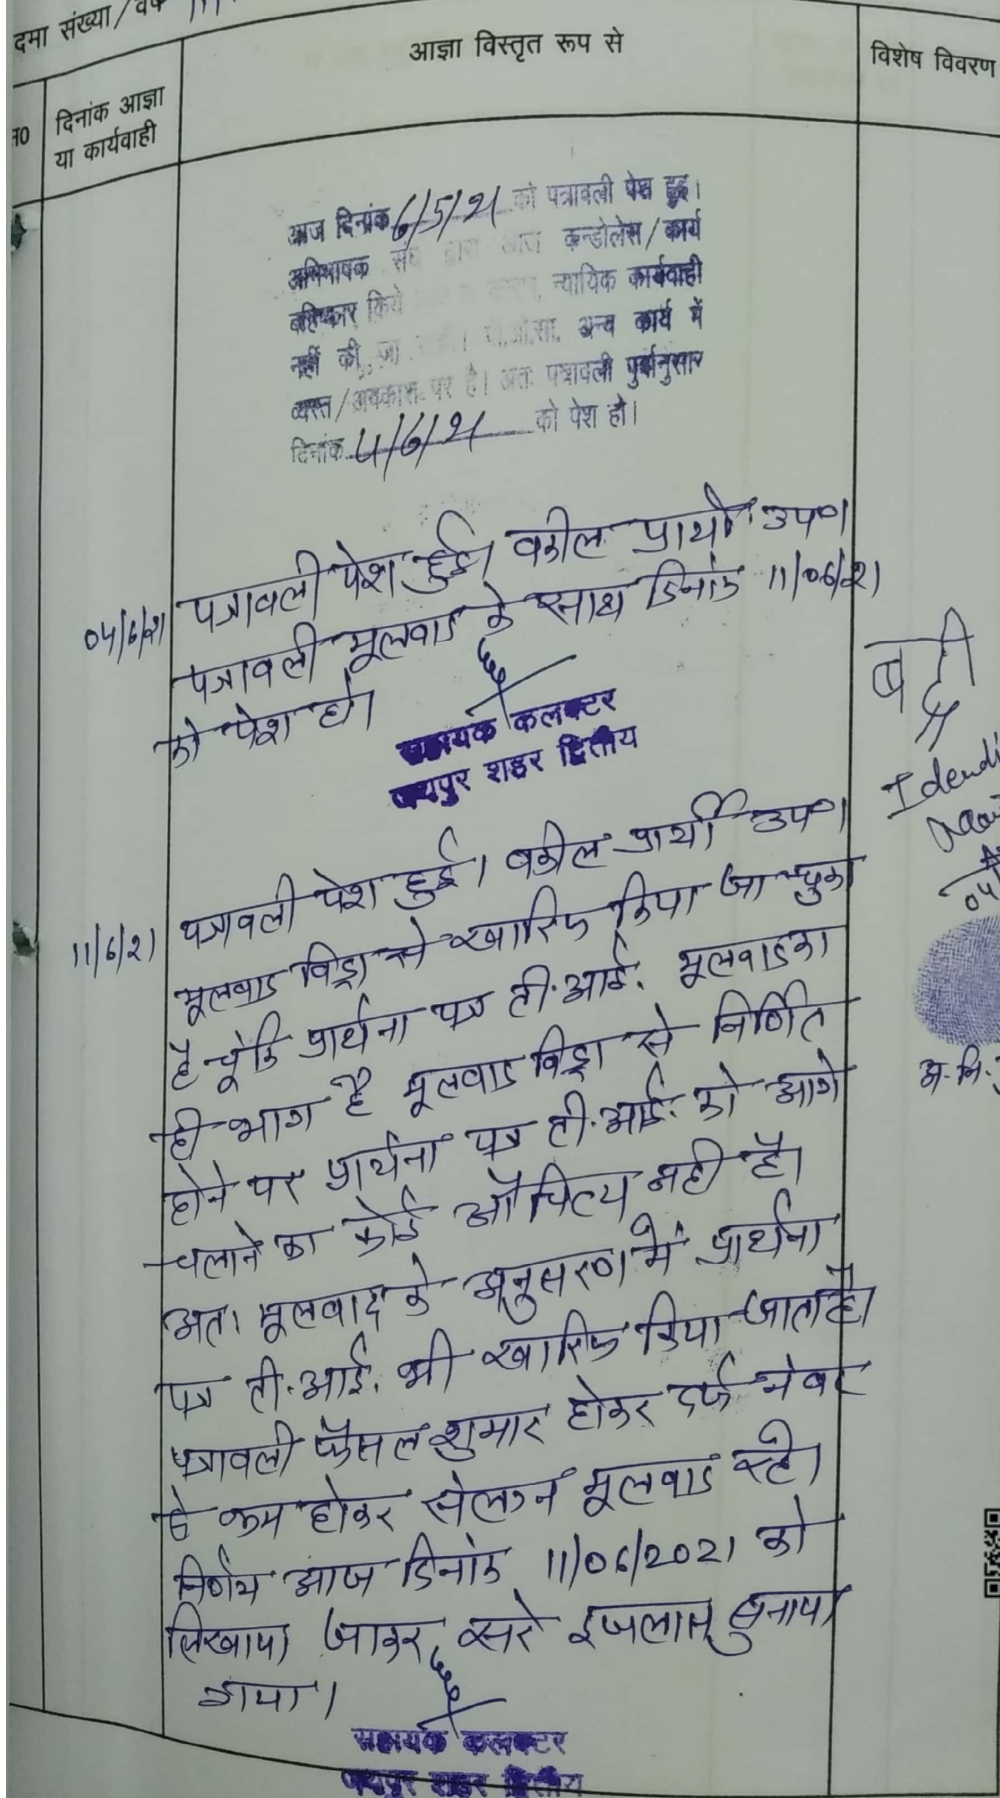 दमा संख्या/वर्ष
आज्ञा विस्तृत रूप से
विशेष विवरण
दिनांक आज्ञा
या कार्यवाही
आज दिनांक 6/5/21 को पत्रावली पेश हुई।
अभिभावक संघ द्वारा आज कन्डोलेंस/कार्य
बहिष्कार किये न्यायिक कार्यवाही
नहीं की जा पी.ओ.सा. अन्य कार्य में
व्यस्त/अवकाश पर है। अतः पत्रावली पुर्वानुसार
दिनांक 4/6/21 को पेश हो।
04/6/21 पत्रावली पेश हुई। वकील प्रार्थी उप०।
पत्रावली मूलवाद के साथ दिनांक 11/06/21
को पेश हो।
सहायक कलक्टर
जयपुर शहर द्वितीय
11/6/21 पत्रावली पेश हुई। वकील प्रार्थी उप०।
मूलवाद विड्रा से खारिज किया जा चुका
है चूंकि प्रार्थना पत्र टी.आई. मूलवाद का
ही भाग है मूलवाद विड्रा से निर्णित
होने पर प्रार्थना पत्र टी.आई. को आगे
चलाने का कोई औचित्य नही है।
अतः मूलवाद के अनुसरण में प्रार्थना
पत्र टी.आई. भी खारिज किया जाता है।
पत्रावली फैसल शुमार होकर दर्ज नंबर
से कम होकर संलग्न मूलवाद रहे।
निर्णय आज दिनांक 11/06/2021 को
लिखाया जाकर सरे इजलास सुनाया
गया।
सहायक कलक्टर
जयपुर शहर द्वितीय
बद्री
04
अ. नि.